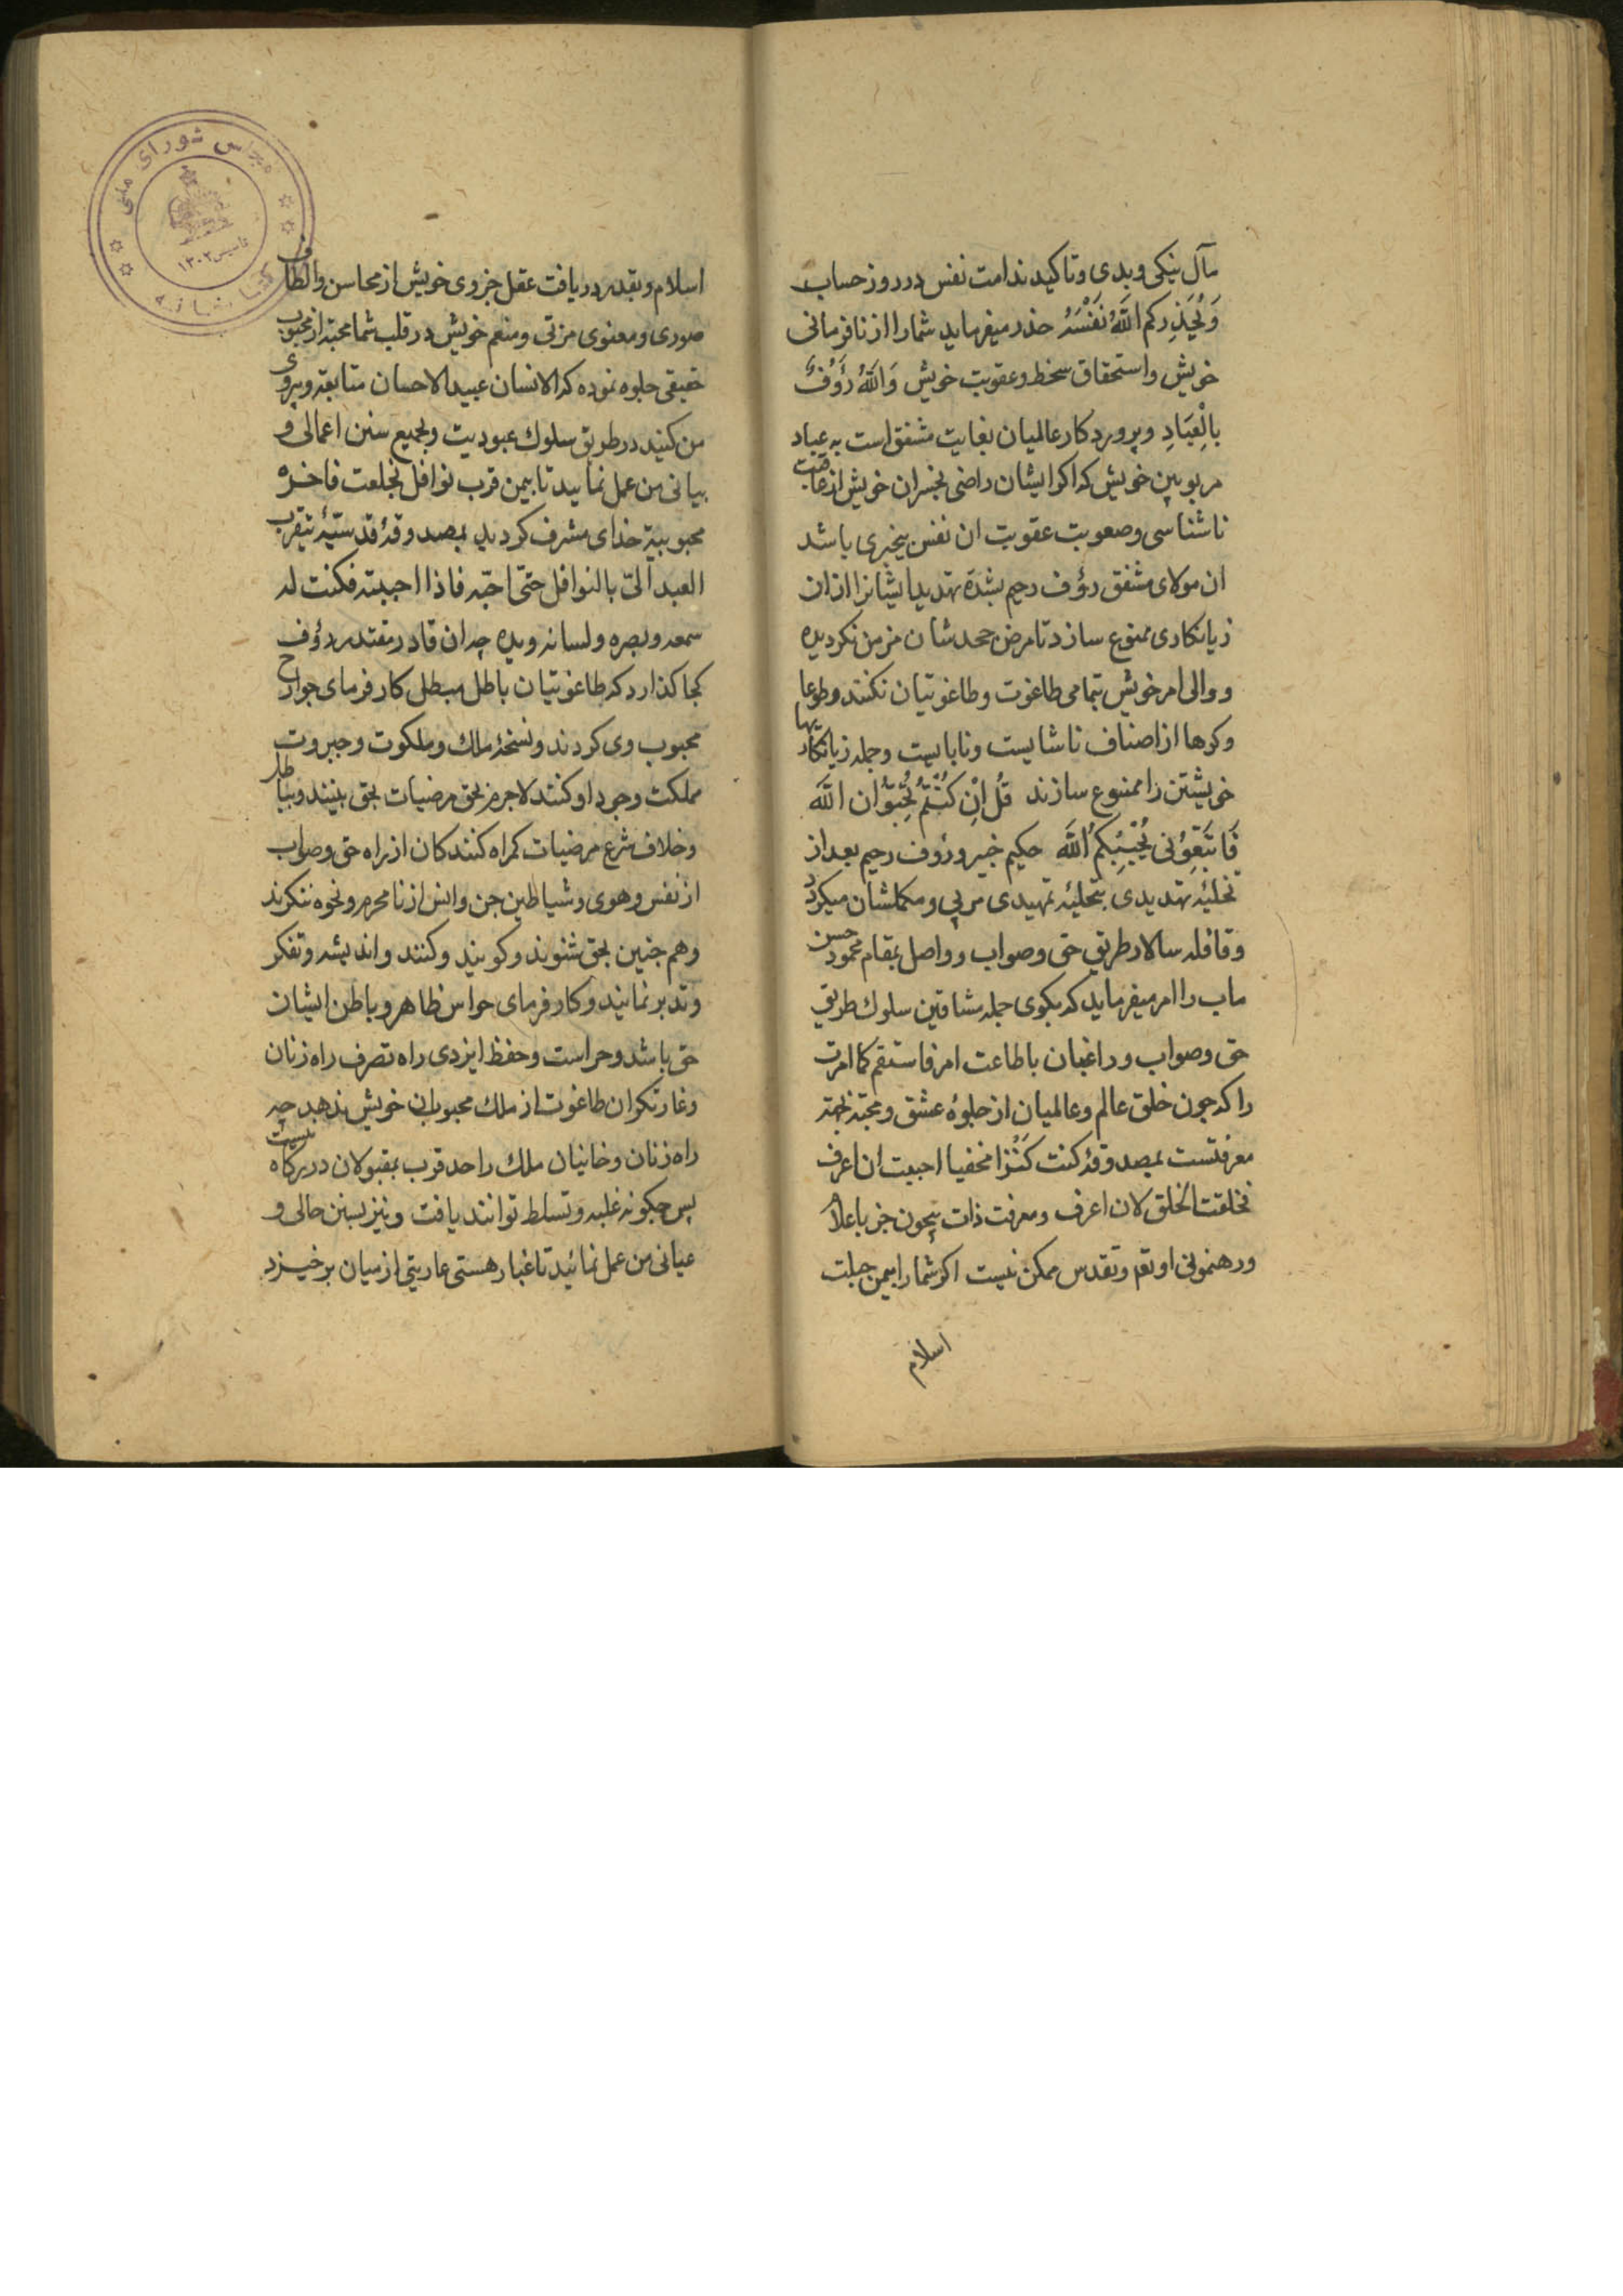 مآل نیکی و بدی و تاکید ندامت نفس در روز حساب
وَ يُحَذِّركم اللّهُ نَفْسَهُ حذر میفرماید شما را از نافرمانی
خویش و استحقاق سخط و عقوبت خویش وَ اللّهُ رَؤُفٌ
بِالْعِبَادِ و پروردکار عالمیان بغایت مشفق است به عباد
مربوبین خویش که اکر ایشان راضی بخسران خویش از عاقبت
ناشناسی و صعوبت عقوبت ان نفس بیخبری باشد
ان مولای مشفق رؤف رحیم بشدة تهدید ایشانرا از ان
زیانکاری ممنوع سازد تا مرض جحدشان مزمن نکردیده
و والی امر خویش بتمامی طاغوت و طاغوتیان نکنند و طوعا
و کرها از اصناف ناشایست و نابایست و جمله زیانکاریها
خویشتن را ممنوع سازند قُل اِنْ كُنْتُمْ تُحِبُّوْنَ اللّهَ
فَاتَّبَعُوْنی يُحْبِبْكُمُ اللّهَ حکیم خبیر و رؤف رحیم بعد از
تخلیهٔ تهدیدی بتحلیهٔ تمهیدی مربی و مکملشان میکردد
و قافله سالار طریق حق و صواب و واصل بمقام محمود حسن
ماب را امر میفرماید که بکوی جمله مشاقین سلوک طریق
حق و صواب و راغبان باطاعت امر فاستقم کما امرت
را که چون خلق عالم و عالمیان از جلوهٔ عشق و محبة بجهة
معرفتست بمصدوقهٔ کنت کَنْزا مخفیا احببت ان اعرف
فخلقت الخلق لان اعرف و معرفت ذات بیچون جز باعلام
و رهنمونی او تعم و تقدس ممکن نیست اکر شما را بیمن جبلت
اسلام
اسلام و بقدر دریافت عقل جزوی خویش از محاسن و الطاف
صوری و معنوی مربی و منعم خویش در قلب شما محبة از محبوب
حقیقی جلوه نموده که الانسان عبید الاحسان متابعة و پیروی
من کنید در طریق سلوک عبودیت و بجمیع سنن اعمالی و
بیانی من عمل نمایید تا بیمن قرب نوافل بخلعت فاخره
محبوبیة خدای مشرف کردید بمصدوقهٔ قدسیّهٔ یتقرب
العبد الیّ بالنوافل حتّی احبّه فاذا احببته فکنت له
سمعه و بصره و لسانه و یده چه ان قادر مقتدر رؤف
کجا کذارد که طاغوتیان باطل مبطل کار فرمای جوارح
محبوب وی کردند و نسخهٔ ملک و ملکوت و جبروت
مملکت وجود او کنند لاجرم بحق مرضیات بحق بینند و بباطل
و خلاف شرع مرضیات کمراه کنندکان از راه حق و صواب
از نفس و هوی و شیاطین جن و انس از نا محرم و نحوه ننکرند
و هم چنین بحق شنوند و کویند و کنند و اندیشه و تفکر
و تدبر نمایند و کار فرمای حواس ظاهر و باطن ایشان
حق باشد و حراست و حفظ ایزدی راه تصرف راه زنان
و غارتکران طاغوت از ملک محبوبان خویش ندهد چه
راه زنان و خانیان ملک را حد قرب بمقبولان درکاه نیست
پس چکونه غلبه و تسلط توانند یافت و نیز بسنن حالی و
عیانی من عمل نمائید تا غبار هستی عاریتی از میان برخیزد
مجلس شورای ملی
تاسیس ۱۳۰۲
کتابخانه